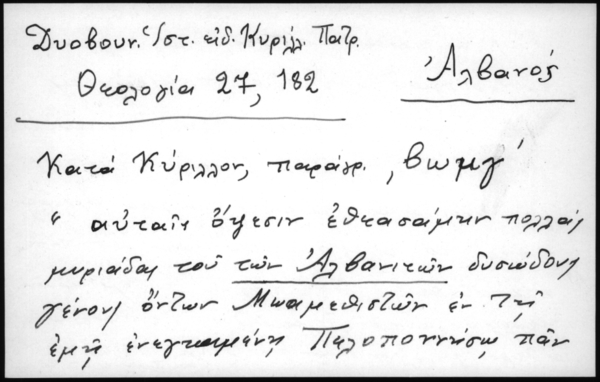 Δυοβουν. Ἱστ. εἰδ. Κυρίλλ. Πατρ.
Θεολογία 27, 182
Ἀλβανός
Κατά Κύριλλον, παράγρ. ͵βωμγ΄
“ αὐταῖς ὄψεσιν ἐθεασάμην πολλάς
μυριάδας τοῦ τῶν Ἀλβανιτῶν δυσώδους
γένους ὄντων Μωαμεθιστῶν ἐν τῇ
ἐμῇ ἐνεγκαμένῃ Πελοποννήσῳ πᾶν